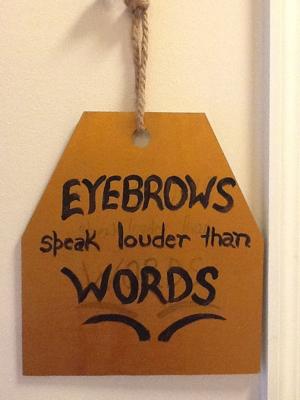 EYEBROWS
speak louder than
WORDS